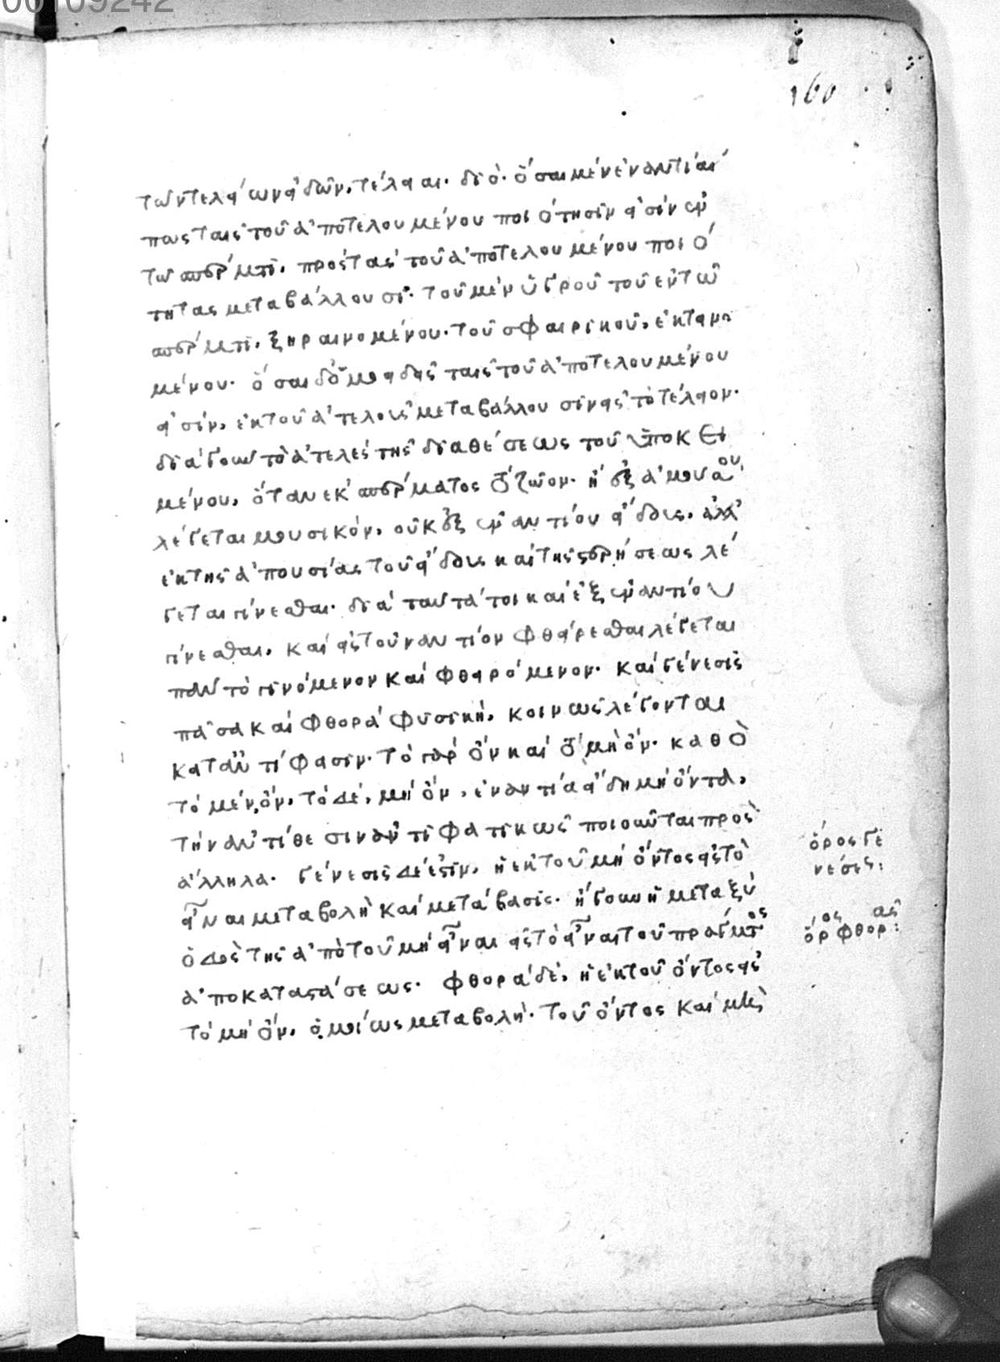 00109242
160
τῶν τελείων εἰδῶν, τέλειαι. διὸ ὅσαι μὲν ἐναντίαι
πως ταῖς τοῦ ἀποτελουμένου ποιότησίν εἰσιν ἐν
τῶ σπέρματι, πρὸς τὰς τοῦ ἀποτελουμένου ποιό
τητας μεταβάλλουσι. τοῦ μὲν ὑγροῦ τοῦ ἐν τῶ
σπέρματι, ξηραινομένου. τοῦ σφαιρικοῦ, ἐκτεινο
μένου. ὅσαι δ' ὁμοειδεῖς ταῖς τοῦ ἀποτελουμένου
εἰσίν, ἐκ τοῦ ἀτελοῦς μεταβάλλουσιν εἰς τὸ τέλειον.
διὰ γοῦν τὸ ἀτελὲς τῆς διαθέσεως τοῦ ὑποκει
μένου, ὅταν ἐκ σπέρματος ζῶον. ἢ ἐξ ἀμούσου
λέγεται μουσικόν, οὐκ ἐξ ἐναντίου εἴδους, ἀλλ'
ἐκ τῆς ἀπουσίας τοῦ εἴδους καὶ τῆς στερήσεως λέ
γεται γίνεσθαι. διὰ ταῦτά τοι καὶ ἐξ ἐναντίου
γίνεσθαι, καὶ εἰς τοὐναντίον φθείρεσθαι λέγεται
πᾶν τὸ γινόμενον καὶ φθειρόμενον. καὶ γένεσις
πᾶσα καὶ φθορὰ φυσικὴ, κοινῶς λέγονται
κατ' ἀντίφασιν. τὸ γὰρ ὂν καὶ τὸ μὴ ὄν. καθὸ
τὸ μὲν, ὂν, τὸ δὲ, μὴ ὂν, ἐναντία εἴδη μὴ ὄντα,
τὴν ἀντίθεσιν ἀντιφατικῶς ποιοῦνται πρὸς
ἄλληλα. γένεσις δέ ἐστιν, ἡ ἐκ τοῦ μὴ ὄντος εἰς τὸ
εἶναι μεταβολὴ καὶ μετάβασις. ἤγουν ἡ μεταξὺ
ὁδὸς τῆς ἀπὸ τοῦ μὴ εἶναι εἰς τὸ εἶναι τοῦ πράγματος
ἀποκαταστάσεως. φθορὰ δὲ, ἡ ἐκ τοῦ ὄντος εἰς
τὸ μὴ ὂν, ὁμοίως μεταβολή. τοῦ ὄντος καὶ μὴ
ὅρος γε
νέσεως:
ὅρος φθορᾶς: